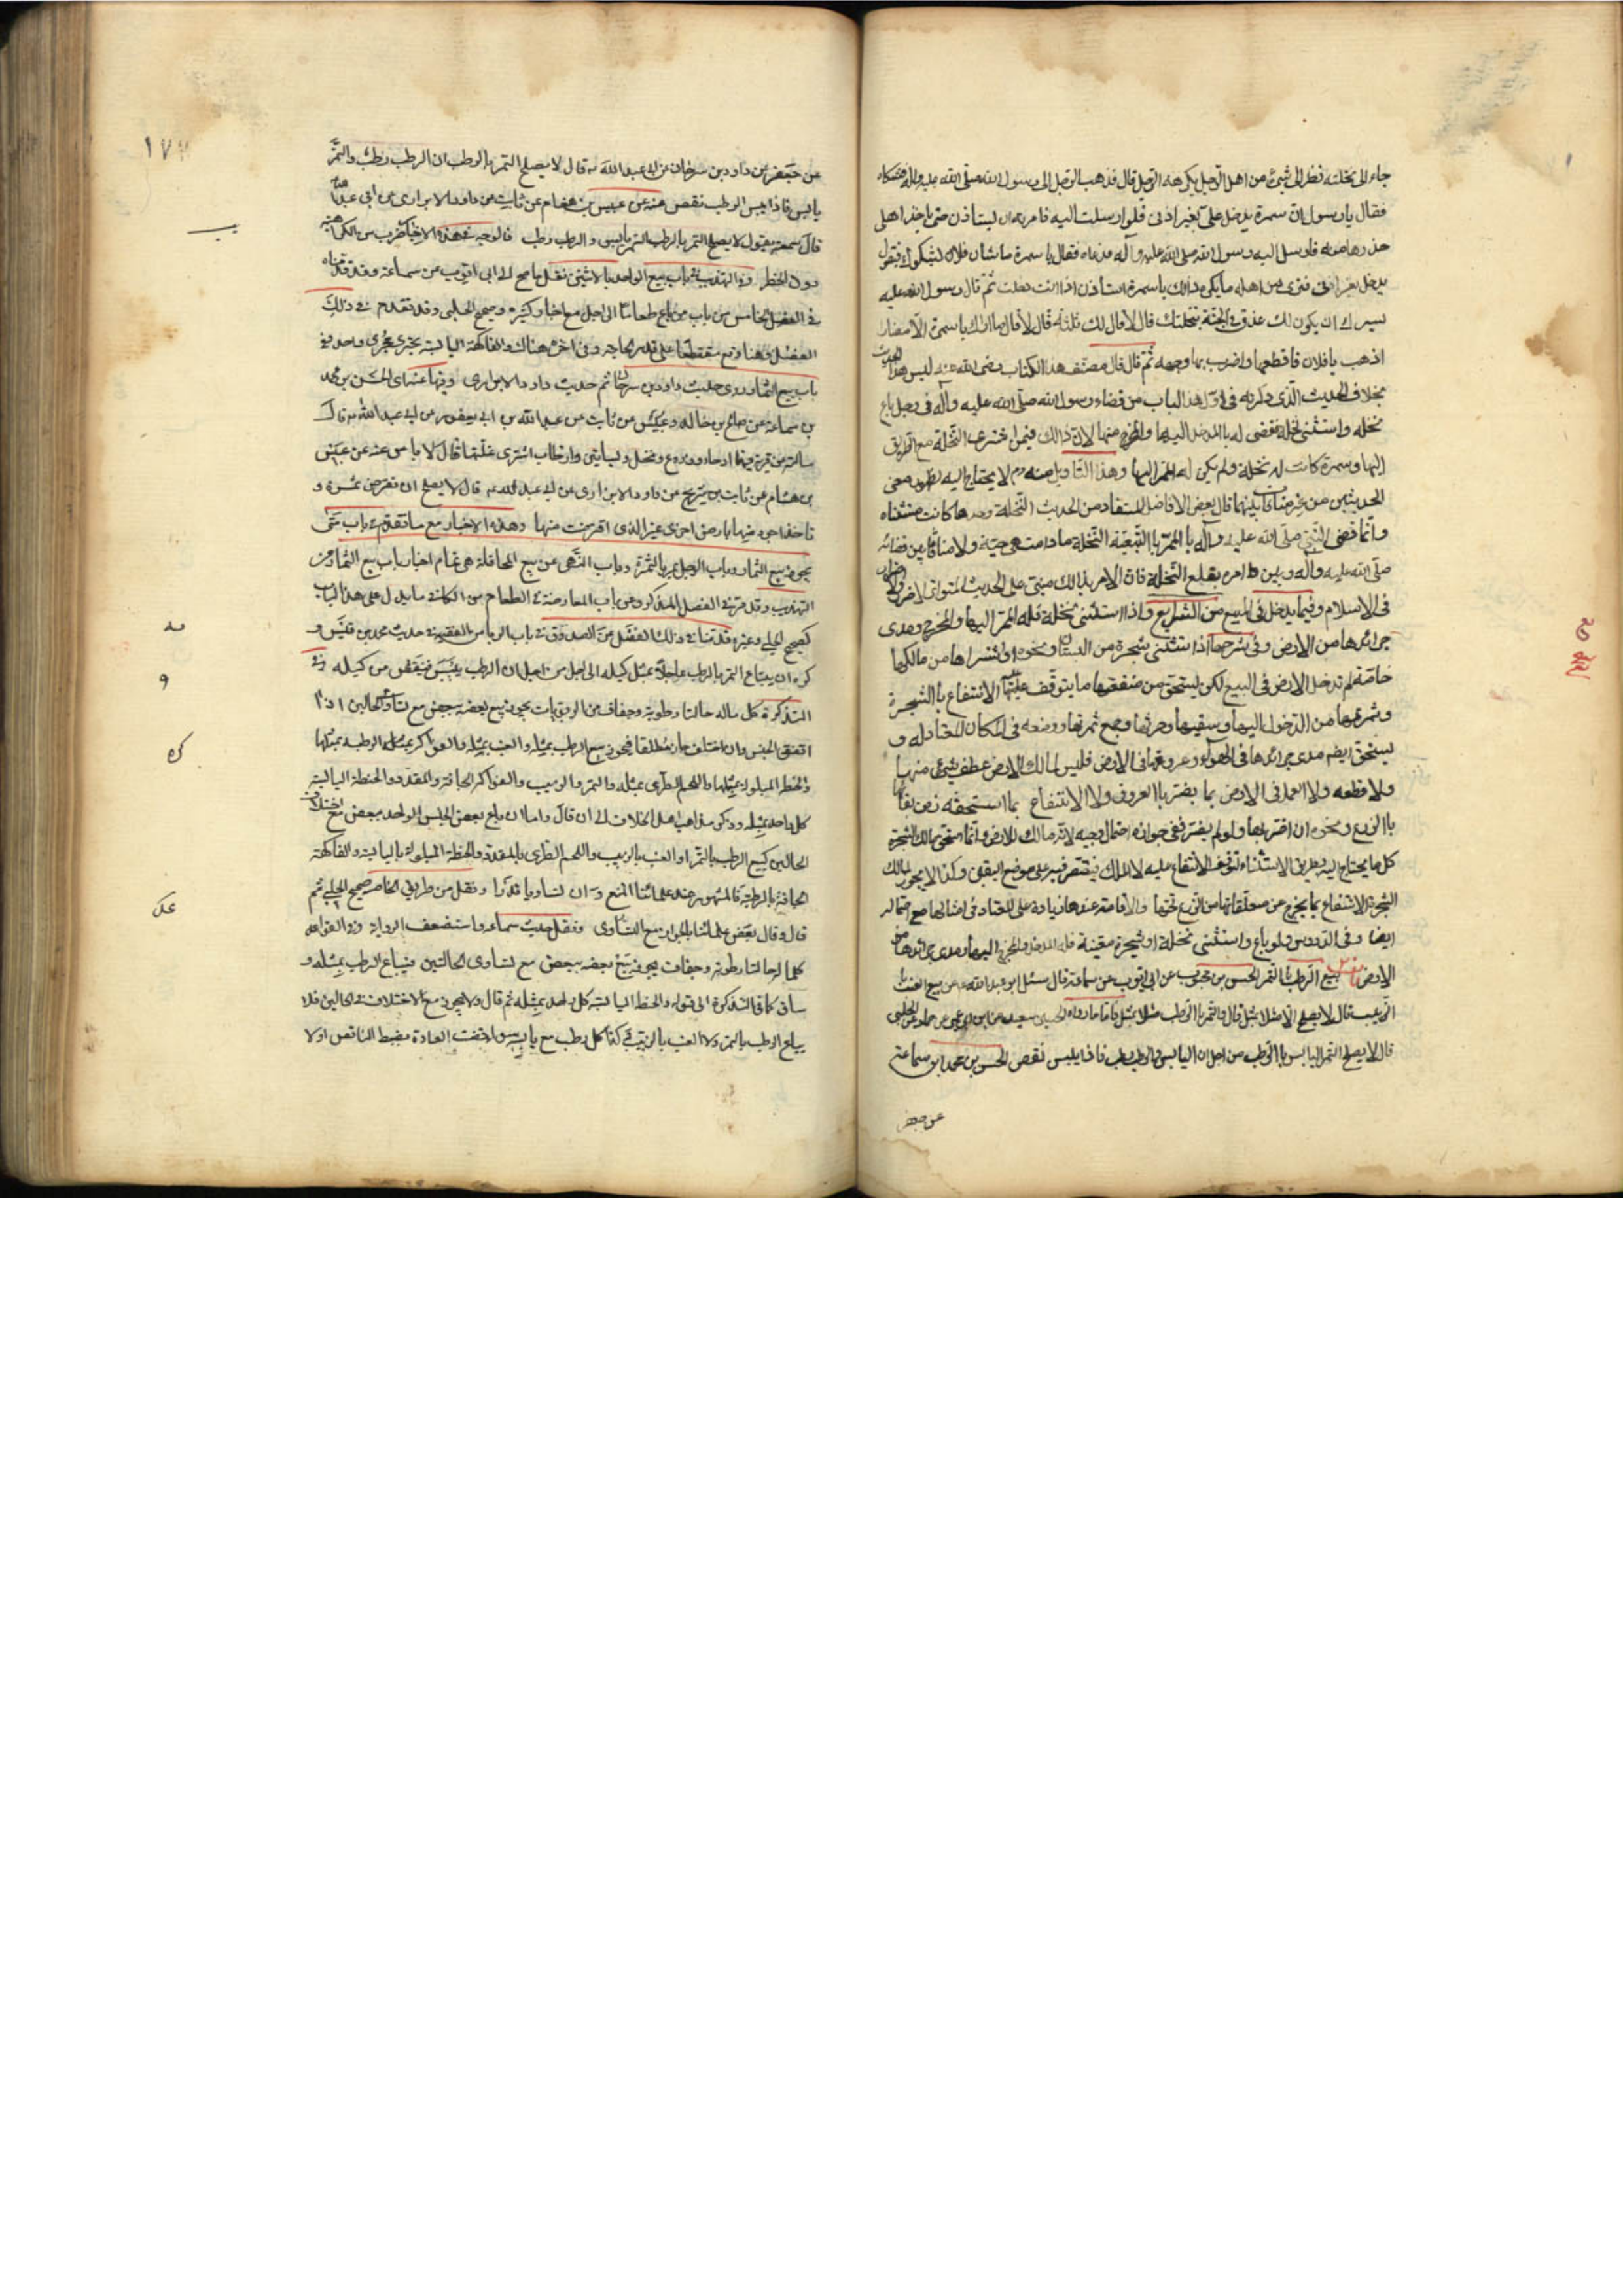 جاء الى نخلته فنظر الى شئ من اهل الرجل يكرهه الرجل قال فذهب الرجل الى رسول الله صلى الله عليه وآله فشكاه
فقال يا رسول الله ان سمرة يدخل على بغير اذنى فلو ارسلت اليه فامرته ان يستاذن حتى ياخذ اهلى
حذرها منه فارسل اليه رسول الله صلى الله عليه وآله فدعاه فقال يا سمرة ما شان فلان يشكوك ويقول
يدخل بغير اذنى فترى من اهله ما يكره ذلك يا سمرة استأذن اذا انت دخلت ثم قال رسول الله عليه
يسرك ان يكون لك عذق فى الجنة بنخلتك قال لا قال لك ثلثة قال لا قال ما اراك يا سمرة الا مضارا
اذهب يا فلان فاقطعها واضرب بها وجهه ثم قال قال مصنف هذا الكتاب رضى الله عنه ليس هذا الحديث
بخلاف الحديث الذى ذكرته فى اول هذا الباب من قضاء رسول الله صلى الله عليه وآله فى رجل باع
نخله واستثنى نخلة فقضى له بالمدخل اليها والمخرج منها لان ذلك فيمن اشترى النخلة مع الطريق
اليها وسمرة كانت له نخلة ولم يكن له الممر اليها وهذا التاويل منه لا يحتاج اليه معنى
الحديثين من غير منافاة بينهما قال بعض الافاضل المستفاد من الحديث النخلة وحدها كانت مستثناه
وانما قضى النبى صلى الله عليه وآله بالممر بالتبعية النخلة ما دامت حية ولا منافاة بين قضائه
صلى الله عليه وآله وبين امره بقلع النخلة فان الامر بذلك مبنى على الحديث المتواتر لا ضرر ولا ضرار
فى الاسلام وفيما يدخل فى المبيع من الشرايع واذا استثنى نخلة فله الممر اليها والمخرج ومدى
جرائدها من الارض وفى شرحها اذا استثنى شجرة من البستان ونحوه او اشتراها من مالكها
خاصة لم تدخل الارض فى البيع لكن يستحق من منفعتها ما يتوقف عليه الانتفاع بالشجرة
وثمرتها من الدخول اليها وسقيها وحرثها وجمع ثمرتها ووضعه فى المكان المعتاد له و
يستحق ايضا مدى جرائدها فى الهواء وعروقها فى الارض فليس لمالك الارض عطف شئ منها
ولا قطعه ولا العمل فى الارض بما يضر بالعروق ولا الانتفاع بما استحقه زمن بقائها
بالزرع ونحوه ان اضر بها ولو لم يضر ففى جوازه احتمال وجيه لانه مالك للارض وانما استحق مالك الشجرة
كل ما يحتاج اليه بطريق الاستثناء لتوقف الانتفاع عليه لا الملك فيقتصر فيه على موضع اليقين وكذا لا يجوز لمالك
الشجرة الانتفاع بما يخرج عن متعلقاتها من الزرع تحتها والاقامة عندها زيادة على المعتاد فى امثالها مع احتماله
ايضا وفى الدروس ولو باع واستثنى نخلة او شجرة معينة فله المدخل والمخرج اليها ومدى جرائدها من
الارض بيع الرطب بالتمر الحسن بن محبوب عن ابى ايوب عن سماعة قال سئل ابو عبد الله عن بيع العنب با
لزبيب قال لا يصلح الا مثلا بمثل قال والتمر بالرطب مثلا بمثل فاما ما رواه الحسين بن سعيد عن ابن ابى عمير عن حماد عن الحلبى
قال لا يصلح التمر اليابس بالرطب من اجل ان اليابس والرطب رطب فاذا يبس نقص الحسن بن محمد ابن سماعة
عن جعفر
١٧
عن جعفر عن داود بن سرحان عن ابى عبد الله قال لا يصلح التمر بالرطب ان الرطب رطب والتمر
يابس فاذا يبس الرطب نقص عنه عن عبيس بن هشام عن ثابت عن داود الابزارى عن ابى عبد الله
قال سمعته يقول لا يصلح التمر بالرطب التمر يابس والرطب رطب فالوجه فى هذه الاخبار ضرب من الكراهية
دون الحظر وفى التهذيب فى باب بيع الواحد بالاثنين نقل ما صح الى ابى ايوب عن سماعة وقد قدمناه
فى الفصل الخامس من باب من باع طعاما الى اجل مع اخبار كثيرة وصحيح الحلبى وقد تقدم فى ذلك
الفصل وهنا وقع مقتطعا على قدر الحاجة وفى اخره هناك والفاكهة اليابسة يجرى مجرى واحد وفى
باب بيع الثمار روى حديث داود بن سرحان ثم حديث داود الابزارى وفيها عنهما اى الحسن بن محمد
بن سماعة عن صالح بن خالد وعبيس عن ثابت عن عبد الله بن ابى يعفور عن ابى عبد الله قال
سالته عن قرية فيها ارحاء وزروع ونخل وبساتين وارطاب اشترى غلتها قال لا باس عنه عن عبيس
بن هشام عن ثابت بن شريح عن داود الابزارى عن ابى عبد الله قال لا يصلح ان تقرض ثمرة و
تاخذ اجود منها بارض اخرى غير الذى اقرضت منها وهذه الاخبار مع ما تقدم فى باب متى
يجوز بيع الثمار وباب الرجل يمر بالثمرة وباب النهى عن بيع المحاقلة هى تمام اخبار باب بيع الثمار من
التهذيب وقد مر فى الفصل المذكور وعن باب المعاوضة فى الطعام من الكافى ما يدل على هذا الباب
كصحيح الحلبى وغيره قدمنا فى ذلك الفصل عن الصدوق فى باب الربا من الفقيه حديث محمد بن قيس و
كره ان يبتاع التمر بالرطب عاجلا بمثل كيله الى اجل من اجل ان الرطب ييبس فينقص من كيله وفى
التذكرة كل ماله حالتا رطوبة وجفاف من الربويات يجوز بيع بعضه ببعض مع تساوى الحالين اذا
اتفق الجنس وان اختلف جاز مطلقا فيجوز بيع الرطب بمثله والعنب بمثله والفواكه بمثله الرطبة بمثلها
والحنطة المبلولة بمثلها واللحم الطرى بمثله والتمر والزبيب والفواكه الجافة والمقدد والحنطة اليابسة
كل واحد بمثله وذكر مذاهب اهل الخلاف الى ان قال واما ان بيع بعض الجنس الواحد ببعض مع اختلاف
الحالين كبيع الرطب بالتمر او العنب بالزبيب واللحم الطرى بالمقدد والحنطة المبلولة باليابسة والفاكهة
الجافة بالرطبة فالمشهور عند علمائنا المنع وان تساويا قدرا ونقل من طريق الخاصة صحيح الحلبى ثم
قال وقال بعض علمائنا بالجواز مع التساوى ونقل حديث سماعة واستضعف الرواية وفى القواعد
كلما له حالتا رطوبة وجفاف يجوز بيع بعضه ببعض مع تساوى الحالتين فيباع الرطب بمثله و
ساق كما فى التذكرة الى قوله والحنطة اليابسة كل واحد بمثله ثم قال ولا يجوز مع الاختلاف فى الحالين فلا
يباع الرطب بالتمر ولا العنب بالزبيب وكذا كل رطب مع يابسه سواء قضت العادة بضبط الناقص او لا